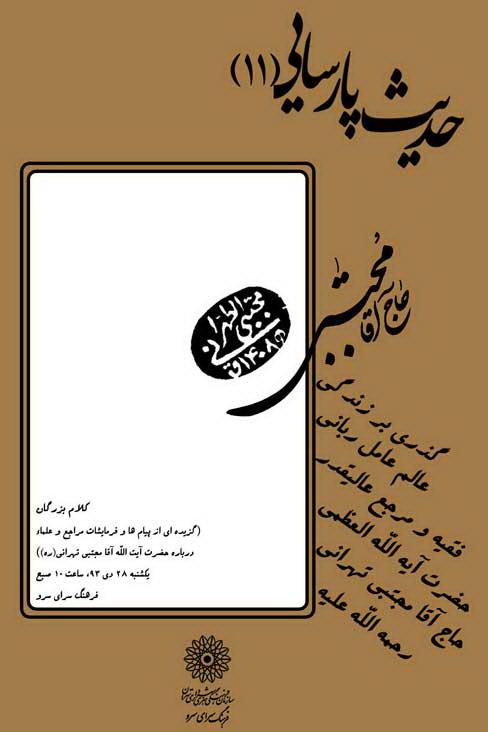 حدیث پارسایی (۱۱)
حاج آقا مجتبی
مجتبی الطهرانی
۱۴۰۸ق
گذری بر زندگی
عالم عامل ربانی
فقیه و مرجع عالیقدر
حضرت آیه الله العظمی
حاج آقا مجتبی تهرانی
رحمه الله علیه
کلام بزرگان
(گزیده ای از پیام ها و فرمایشات مراجع و علماء
درباره حضرت آیت الله آقا مجتبی تهرانی(ره))
یکشنبه ۲۸ دی ۹۳، ساعت ۱۰ صبح
فرهنگ سرای سرو
سازمان فرهنگی هنری شهرداری تهران
فرهنگسرای سرو